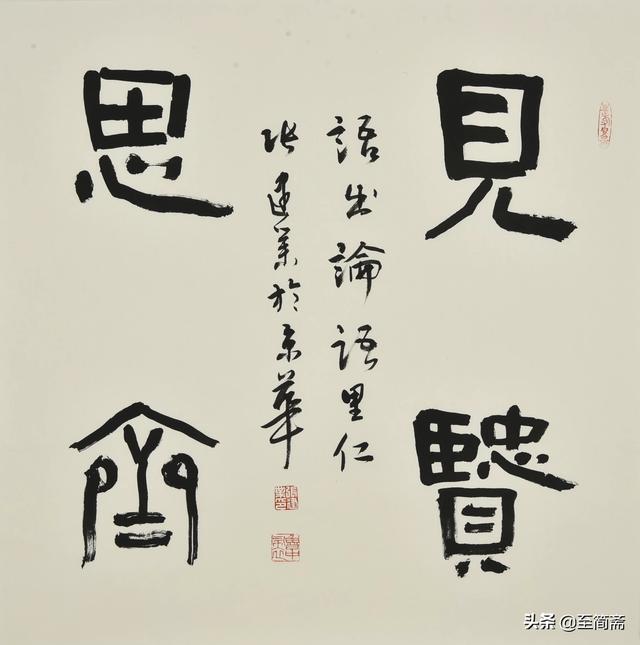 見賢
思齊
語出論語里仁
張建業於京華
头条 @至简斋